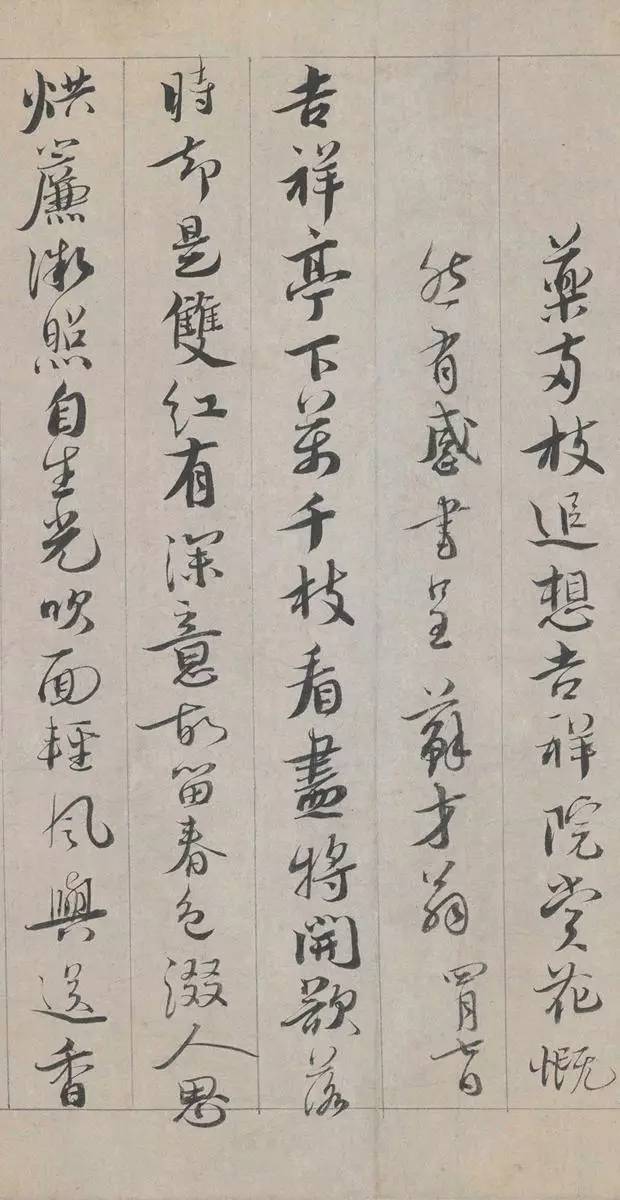 藥両枝追想吉祥院赏花慨
然有感書呈蘇才翁四月七日
吉祥亭下萬千枝看盡將開欲落
時却是雙紅有深意故留春色綴人思
烘簾微照自生光吹面輕風與送香